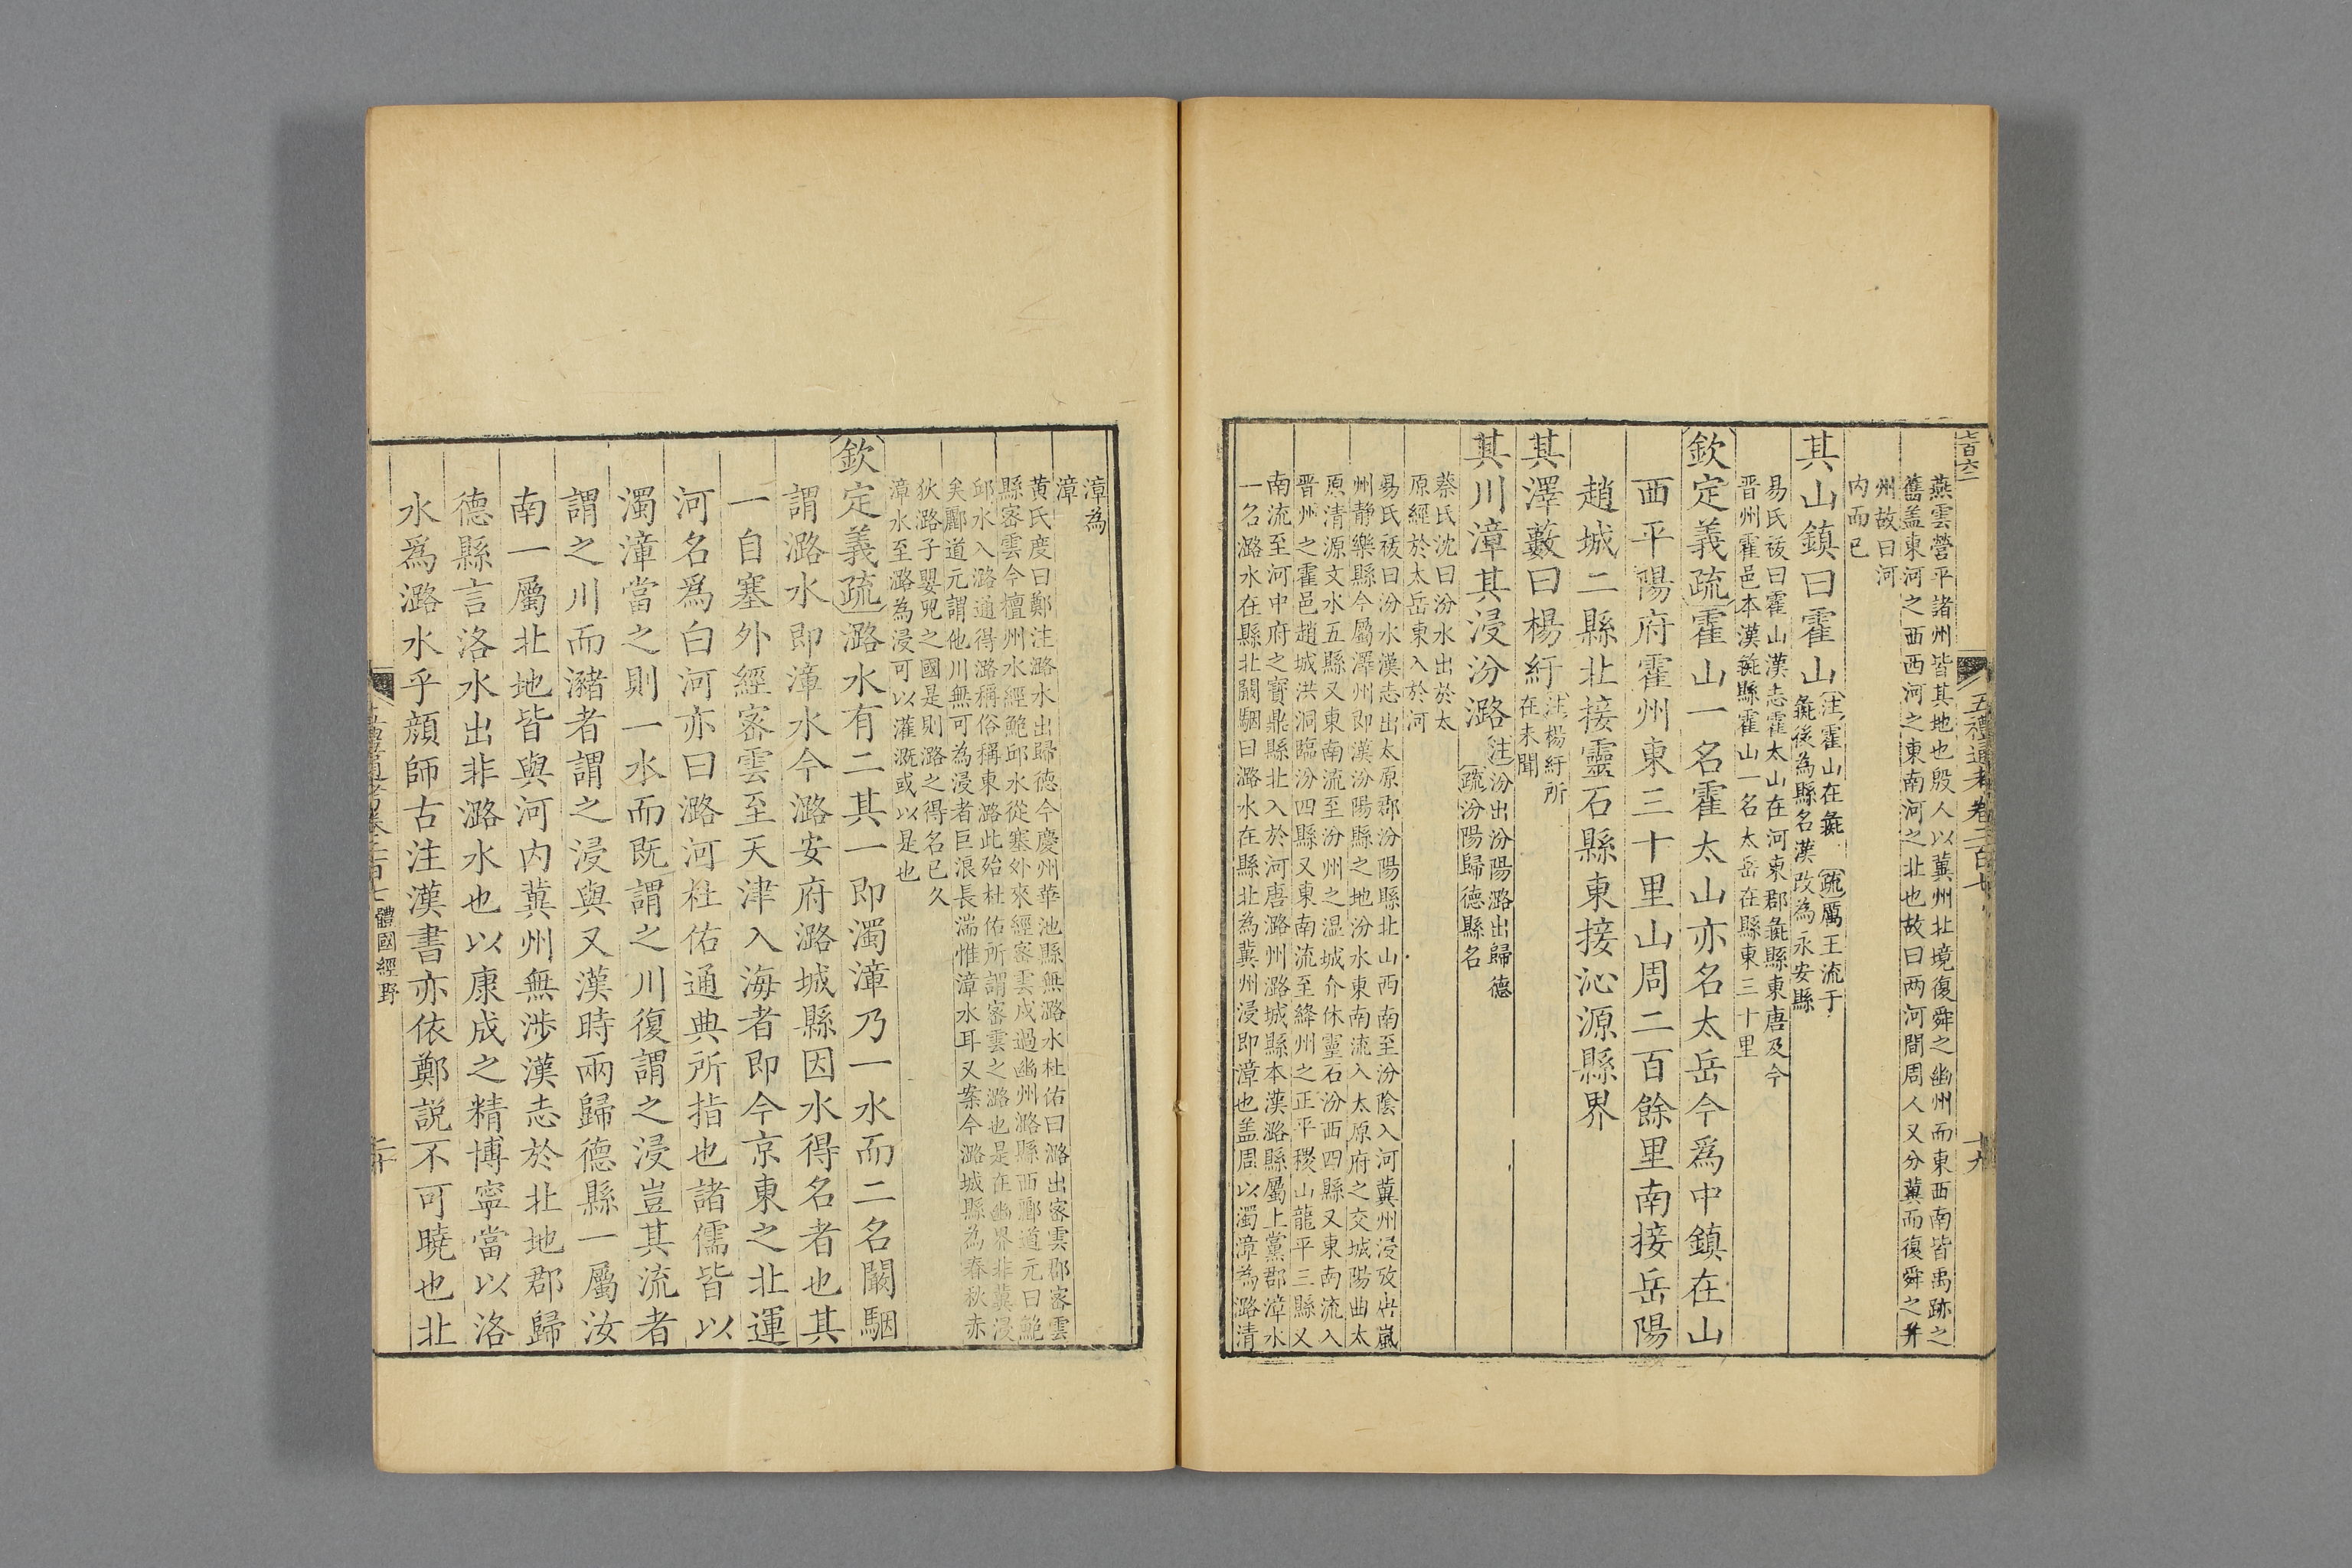 七百六二
五禮通考卷二百七
十九
燕雲營平諸州皆其地也殷人以冀州北境復舜之幽州而東西南皆禹跡之
舊盖東河之西西河之東南河之北也故曰两河間周人又分冀而復舜之并
州故曰河
内而已
其山鎮曰霍山
注霍山在彘
疏厲王流于
彘後為縣名漢改為永安縣
易氏祓曰霍山漢志霍太山在河東郡彘縣東唐及今
晋州霍邑本漢彘縣霍山一名太岳在縣東三十里
欽定義疏霍山一名霍太山亦名太岳今爲中鎮在山
西平陽府霍州東三十里山周二百餘里南接岳陽
趙城二縣北接靈石縣東接沁源縣界
其澤藪曰楊紆
注楊紆所
在未聞
其川漳其浸汾潞
注汾出汾陽潞出歸德
疏汾陽歸德縣名
蔡氏沈曰汾水出於太
原經於太岳東入於河
易氏祓曰汾水漢志出太原郡汾陽縣北山西南至汾陰入河冀州浸攷嵐
州静樂縣今屬澤州即漢汾陽縣之地汾水東南流入太原府之交城陽曲太
原清源文水五縣又東南流至汾州之温城介休靈石汾西四縣又東南流入
晋州之霍邑趙城洪洞臨汾四縣又東南流至絳州之正平稷山龍平三縣又
南流至河中府之寶鼎縣北入於河唐潞州潞城縣本漢潞縣屬上黨郡漳水
一名潞水在縣北闞駰曰潞水在縣北為冀州浸即漳也盖周以濁漳為潞清
漳為
漳
黄氏度曰鄭注潞水出歸德今慶州華池縣無潞水杜佑曰潞出密雲郡密雲
縣密雲今檀州水經鮑邱水從塞外來經密雲戍過幽州潞縣西酈道元曰鮑
邱水入潞通得潞稱俗稱東潞此殆杜佑所謂密雲之潞也是在幽界非冀浸
矣酈道元謂他川無可為浸者巨浪長湍惟漳水耳又案今潞城縣為春秋赤
狄潞子嬰兒之國是則潞之得名已久
漳水至潞為浸可以灌溉或以是也
欽定義疏潞水有二其一即濁漳乃一水而二名闞駰
謂潞水即漳水今潞安府潞城縣因水得名者也其
一自塞外經密雲至天津入海者即今京東之北運
河名爲白河亦曰潞河杜佑通典所指也諸儒皆以
濁漳當之則一水而既謂之川復謂之浸豈其流者
謂之川而瀦者謂之浸與又漢時兩歸德縣一屬汝
南一屬北地皆與河内冀州無涉漢志於北地郡歸
德縣言洛水出非潞水也以康成之精博寧當以洛
水爲潞水乎顔師古注漢書亦依鄭説不可曉也北
體國經野
二十